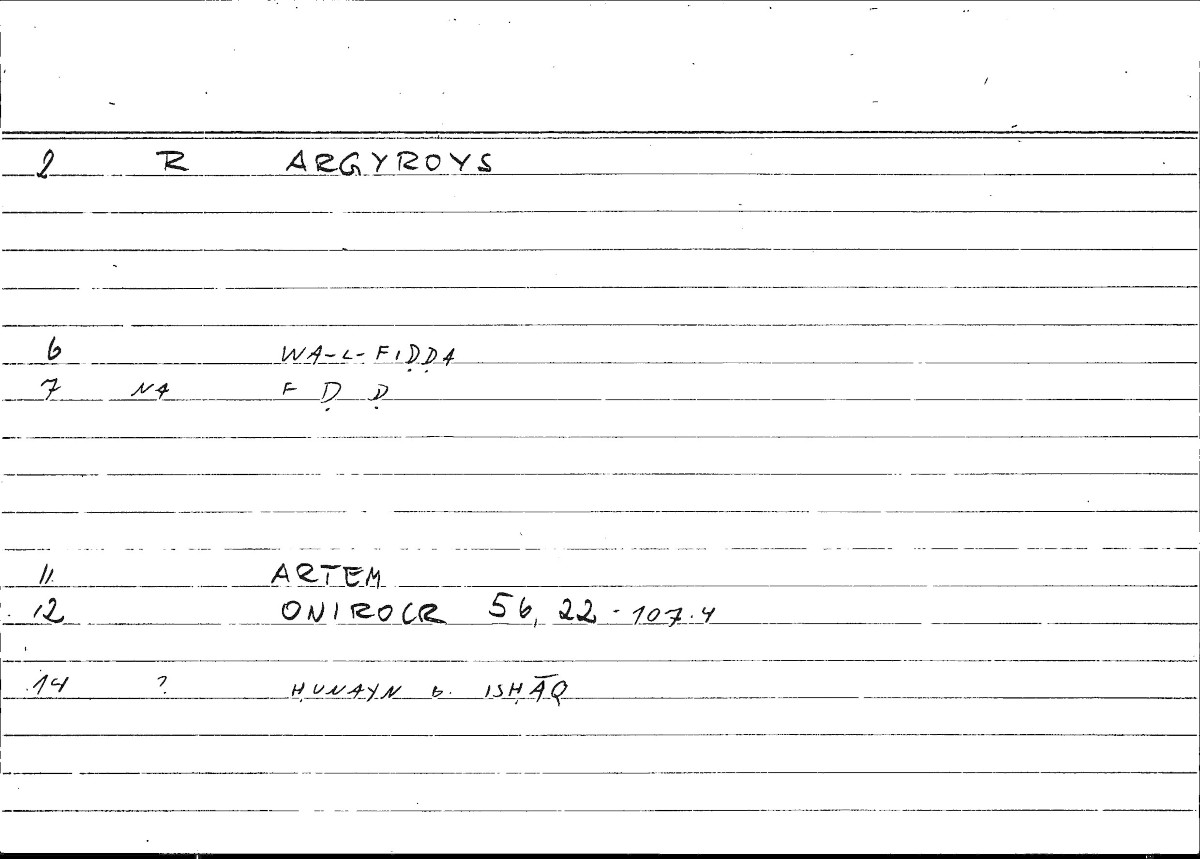 2 R ARGYROYS
6 WA-L-FIḌḌA
7 NA F Ḍ Ḍ
11 ARTEM
12 ONIROCR 56, 22 - 107.4
14 ? ḤUNAYN b. ISḤĀQ